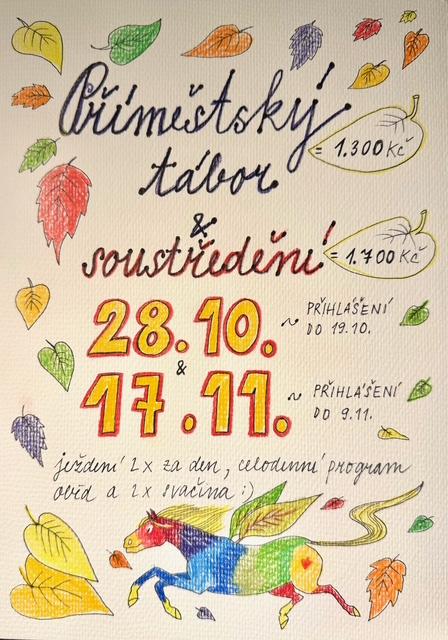 Příměstský
= 1.300 Kč
tábor
&
soustředění
= 1.700 Kč
28.10. ~ PŘIHLÁŠENÍ
DO 19.10.
&
17.11. ~ PŘIHLÁŠENÍ
DO 9.11.
ježdění 2x za den, celodenní program
oběd a 2x svačina :)